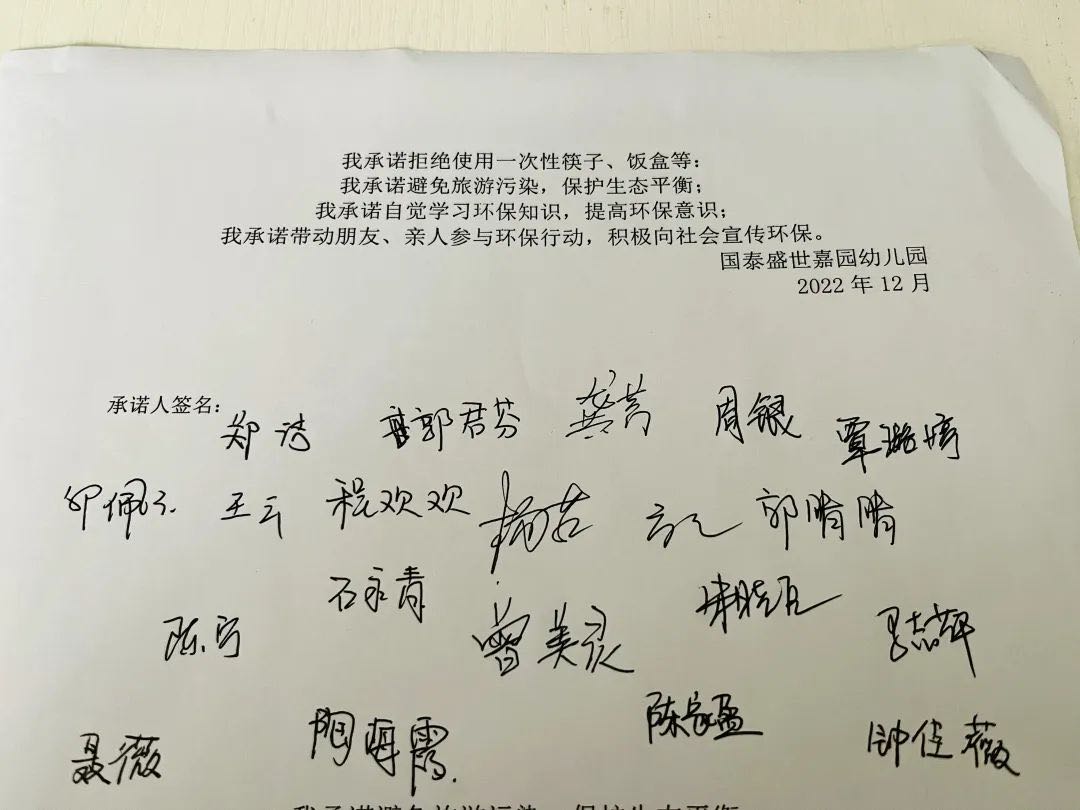 我承诺拒绝使用一次性筷子、饭盒等：
我承诺避免旅游污染，保护生态平衡；
我承诺自觉学习环保知识，提高环保意识；
我承诺带动朋友、亲人参与环保行动，积极向社会宣传环保。
国泰盛世嘉园幼儿园
2022 年 12 月
承诺人签名：郑洁 郭君芬 周银 覃
佩 王云 程欢欢 杨 郭腈腈
石永青
陈宇 曾美 朱晓
聂薇 陶海霞 陈家盈 钟佳薇
我承诺避免旅游污染，保护生态平衡